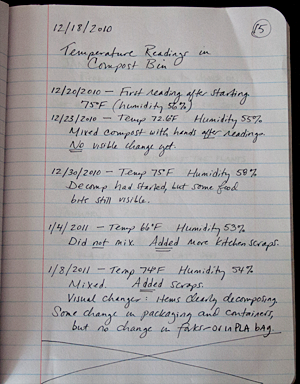 15
12/18/2010
Temperature Readings in
Compost Bin
12/20/2010 — First reading after starting
75°F (humidity 56%)
12/23/2010 — Temp 72.6°F Humidity 55%
Mixed compost with hands after reading.
No visible change yet.
12/30/2010 — Temp 75°F Humidity 58%
Decomp had started, but some food
bits still visible.
1/4/2011 — Temp 66°F Humidity 53%
Did not mix. Added more kitchen scraps.
1/8/2011 — Temp 74°F Humidity 54%
Mixed. Added scraps.
Visual changes: Items clearly decomposing.
Some change in packaging and containers,
but no change in forks — or in PLA bag.